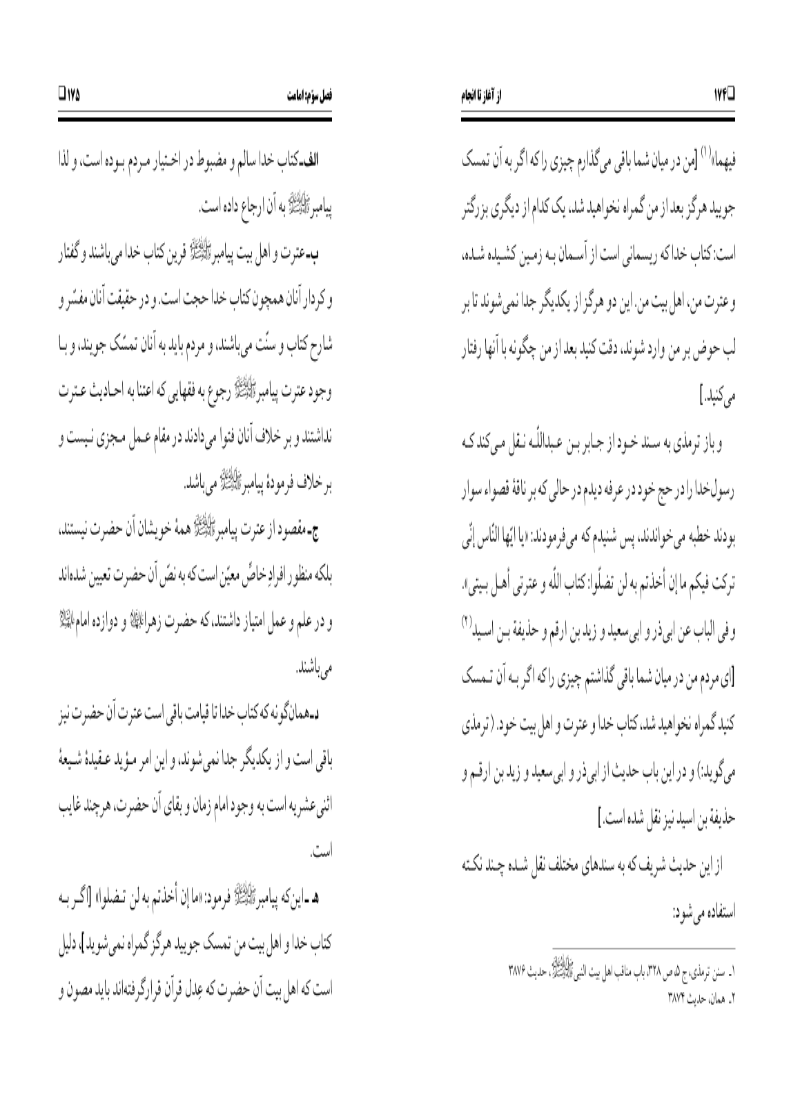 ❑۱۷۴
از آغاز تا انجام
فیهما»(۱) [من در میان شما باقی می‌گذارم چیزی را که اگر به آن تمسک
جویید هرگز بعد از من گمراه نخواهید شد، یک کدام از دیگری بزرگتر
است: کتاب خدا که ریسمانی است از آسمان به زمین کشیده شده،
و عترت من، اهل بیت من. این دو هرگز از یکدیگر جدا نمی‌شوند تا بر
لب حوض بر من وارد شوند، دقت کنید بعد از من چگونه با آنها رفتار
می‌کنید.]
و باز ترمذی به سند خود از جابر بن عبداللّه نقل می‌کند که
رسول‌خدا را در حج خود در عرفه دیدم در حالی که بر ناقهٔ قصواء سوار
بودند خطبه می‌خواندند، پس شنیدم که می‌فرمودند: «یا ایّها النّاس إنّی
ترکت فیکم ما إن أخذتم به لن تضلّوا: کتاب اللّه و عترتی أهل بیتی».
و فی الباب عن ابی‌ذر و ابی‌سعید و زید بن ارقم و حذیفة بن اسید(۲)
[ای مردم من در میان شما باقی گذاشتم چیزی را که اگر به آن تمسک
کنید گمراه نخواهید شد، کتاب خدا و عترت و اهل بیت خود. (ترمذی
می‌گوید:) و در این باب حدیث از ابی‌ذر و ابی‌سعید و زید بن ارقم و
حذیفة بن اسید نیز نقل شده است.]
از این حدیث شریف که به سندهای مختلف نقل شده چند نکته
استفاده می‌شود:
۱ـ سنن ترمذی، ج ۵، ص ۳۲۸، باب مناقب اهل بیت النبیﷺ، حدیث ۳۸۷۶
۲ـ همان، حدیث ۳۸۷۴
فصل سوّم: امامت
۱۷۵❑
الف ـ کتاب خدا سالم و مضبوط در اختیار مردم بوده است، و لذا
پیامبرﷺ به آن ارجاع داده است.
ب ـ عترت و اهل بیت پیامبرﷺ قرین کتاب خدا می‌باشند و گفتار
و کردار آنان همچون کتاب خدا حجت است. و در حقیقت آنان مفسّر و
شارح کتاب و سنّت می‌باشند، و مردم باید به آنان تمسّک جویند، و با
وجود عترت پیامبرﷺ رجوع به فقهایی که اعتنا به احادیث عترت
نداشتند و بر خلاف آنان فتوا می‌دادند در مقام عمل مجزی نیست و
بر خلاف فرمودهٔ پیامبرﷺ می‌باشد.
ج ـ مقصود از عترت پیامبرﷺ همهٔ خویشان آن حضرت نیستند،
بلکه منظور افرادِ خاصِّ معیّن است که به نصّ آن حضرت تعیین شده‌اند
و در علم و عمل امتیاز داشتند، که حضرت زهرا و دوازده امام
می‌باشند.
د ـ همان‌گونه که کتاب خدا تا قیامت باقی است عترت آن حضرت نیز
باقی است و از یکدیگر جدا نمی‌شوند، و این امر مؤید عقیدهٔ شیعهٔ
اثنی‌عشریه است به وجود امام زمان و بقای آن حضرت، هرچند غایب
است.
هـ ـ این‌که پیامبرﷺ فرمود: «ما إن أخذتم به لن تضلوا» [اگر به
کتاب خدا و اهل بیت من تمسک جویید هرگز گمراه نمی‌شوید]، دلیل
است که اهل بیت آن حضرت که عِدل قرآن قرارگرفته‌اند باید مصون و